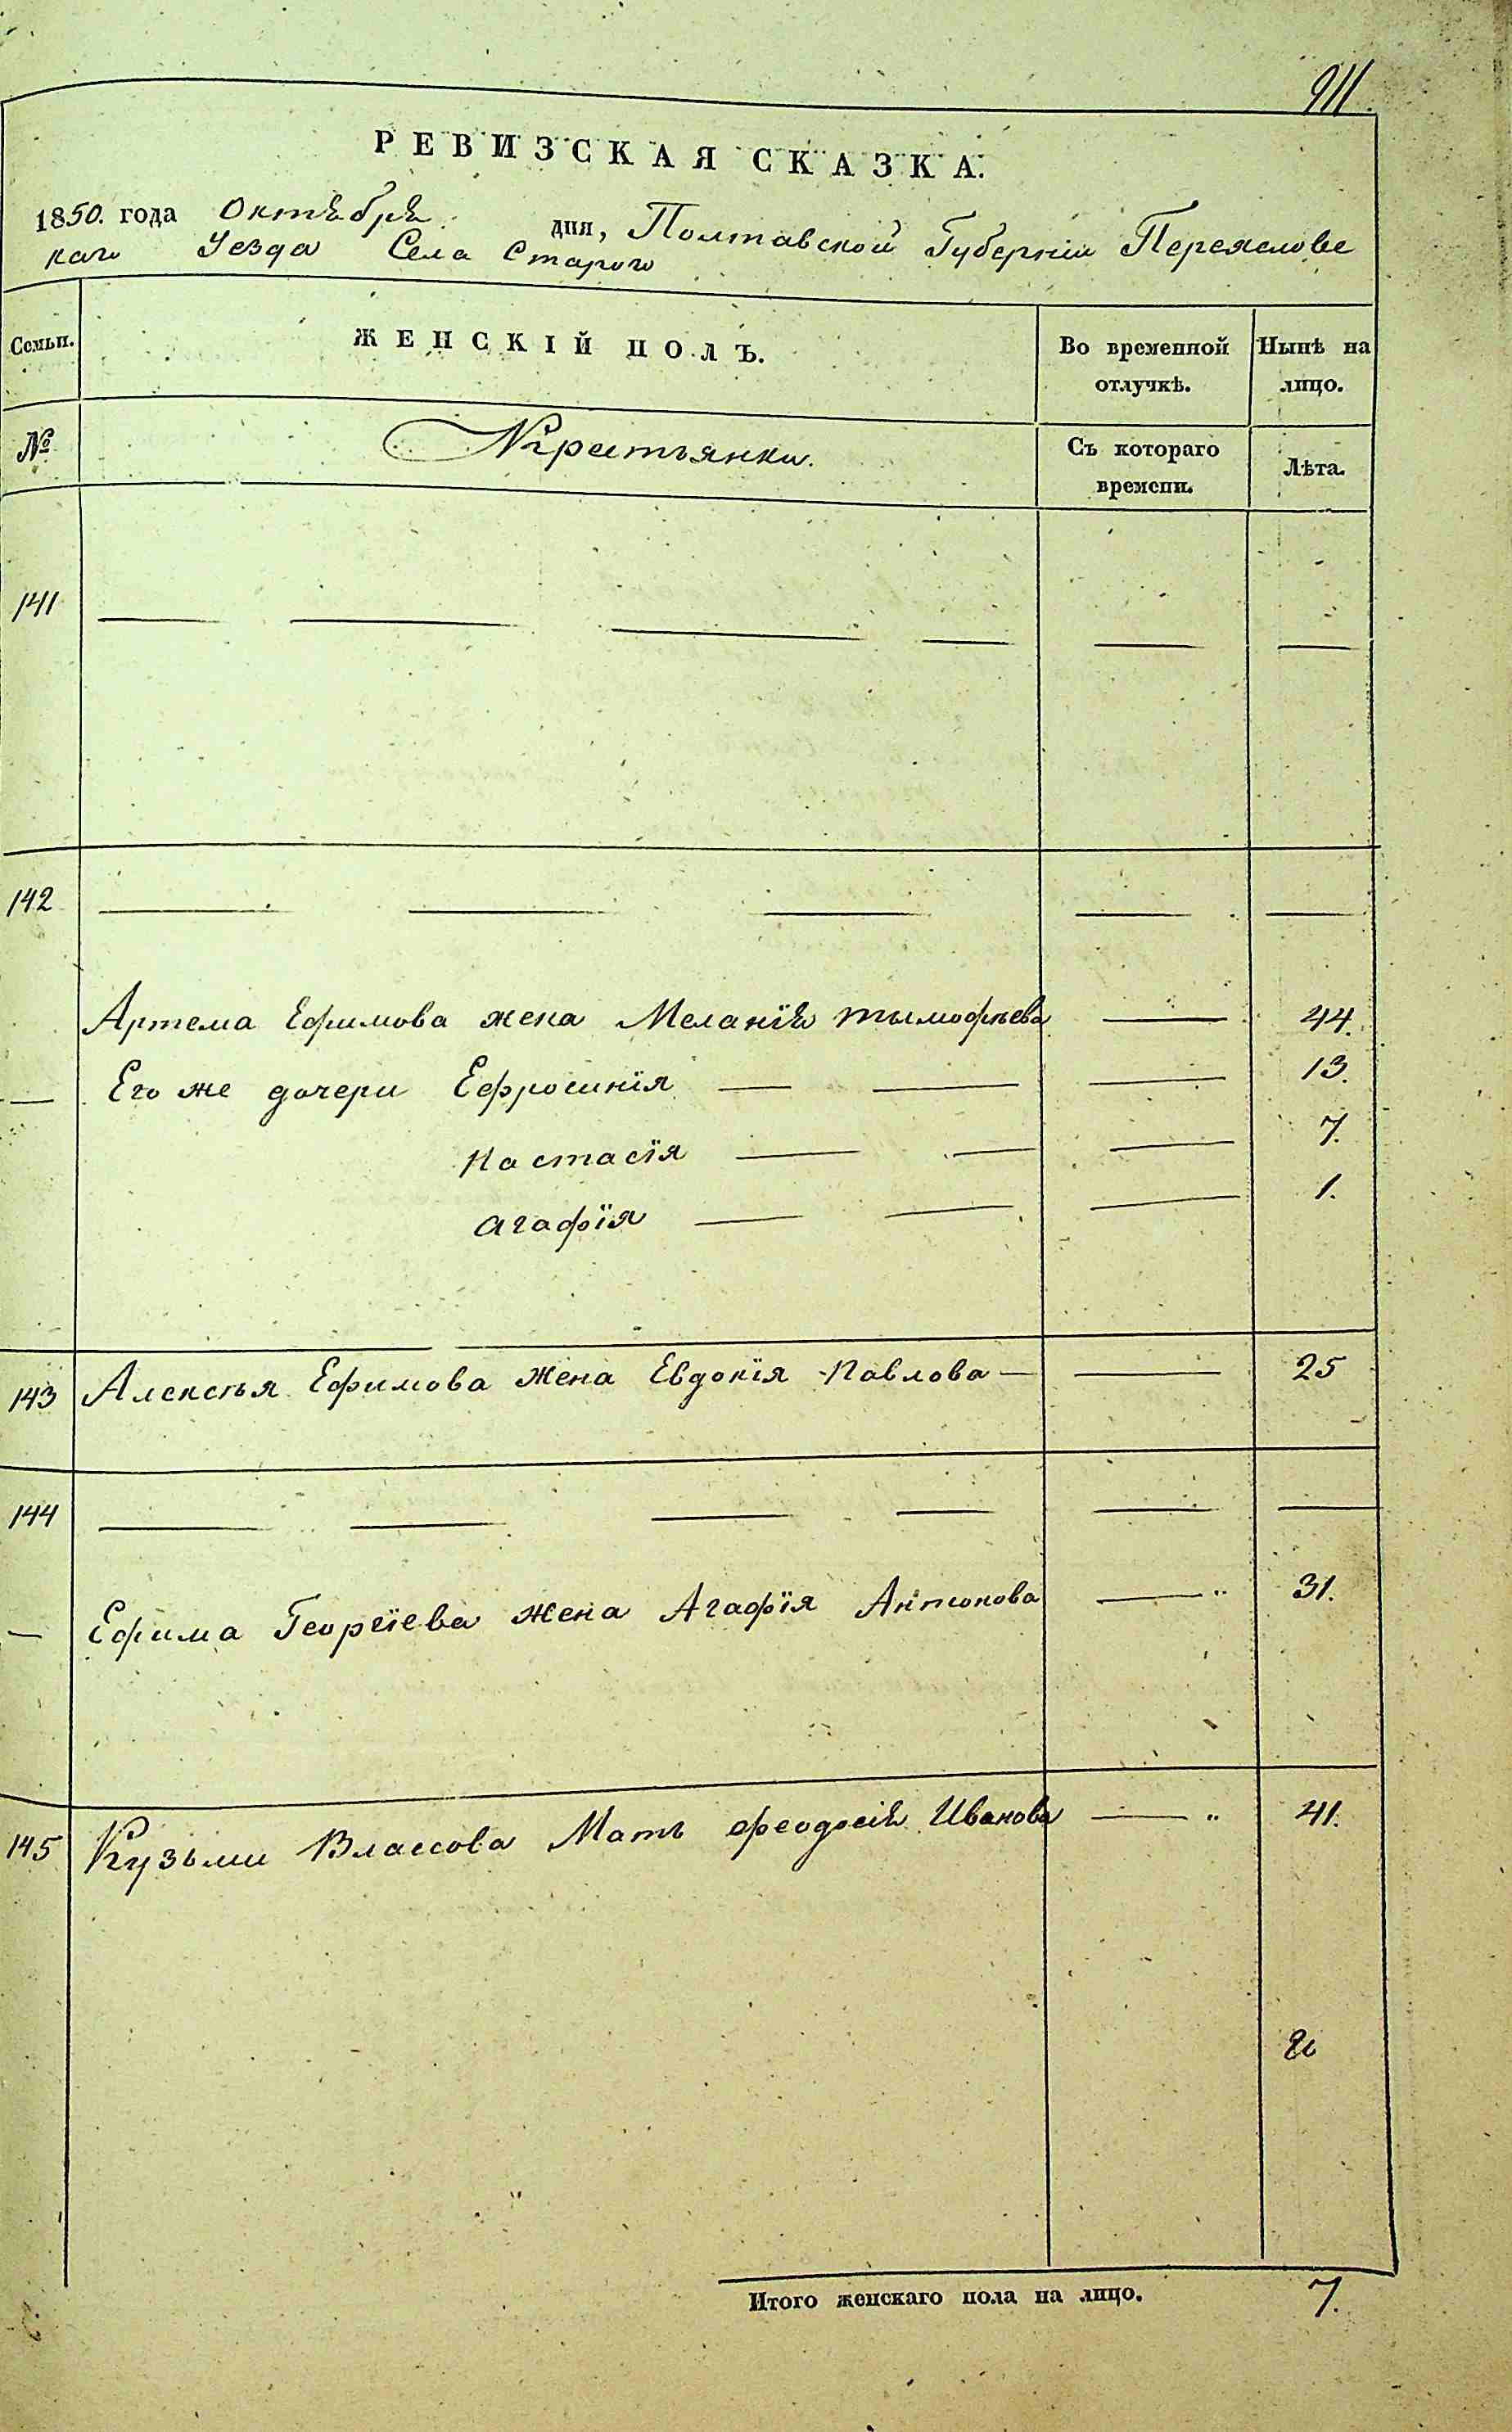 911.
РЕВИЗСКАЯ СКАЗКА.
1850. года Октября дня, Полтавской Губернии Переяслове
каго Уезда Села Старого
Семьи. ЖЕНСКІЙ ПОЛЪ. Во временной отлучкѣ. Нынѣ на лицо.
№ Крестьянки. Съ котораго времени. Лѣта.
141
142
Артема Ефимова жена Меланія Тымофѣева 44.
Его же дочери Ефросинія 13.
Настасія 7.
Агафія 1.
143 Алексѣя Ефимова жена Евдокія Павлова 25
144
Ефима Георгіева жена Агафія Антонова 31.
145 Кузьми Влассова Мать Феодосія Иванова 41.
Итого женскаго пола на лицо. 7.